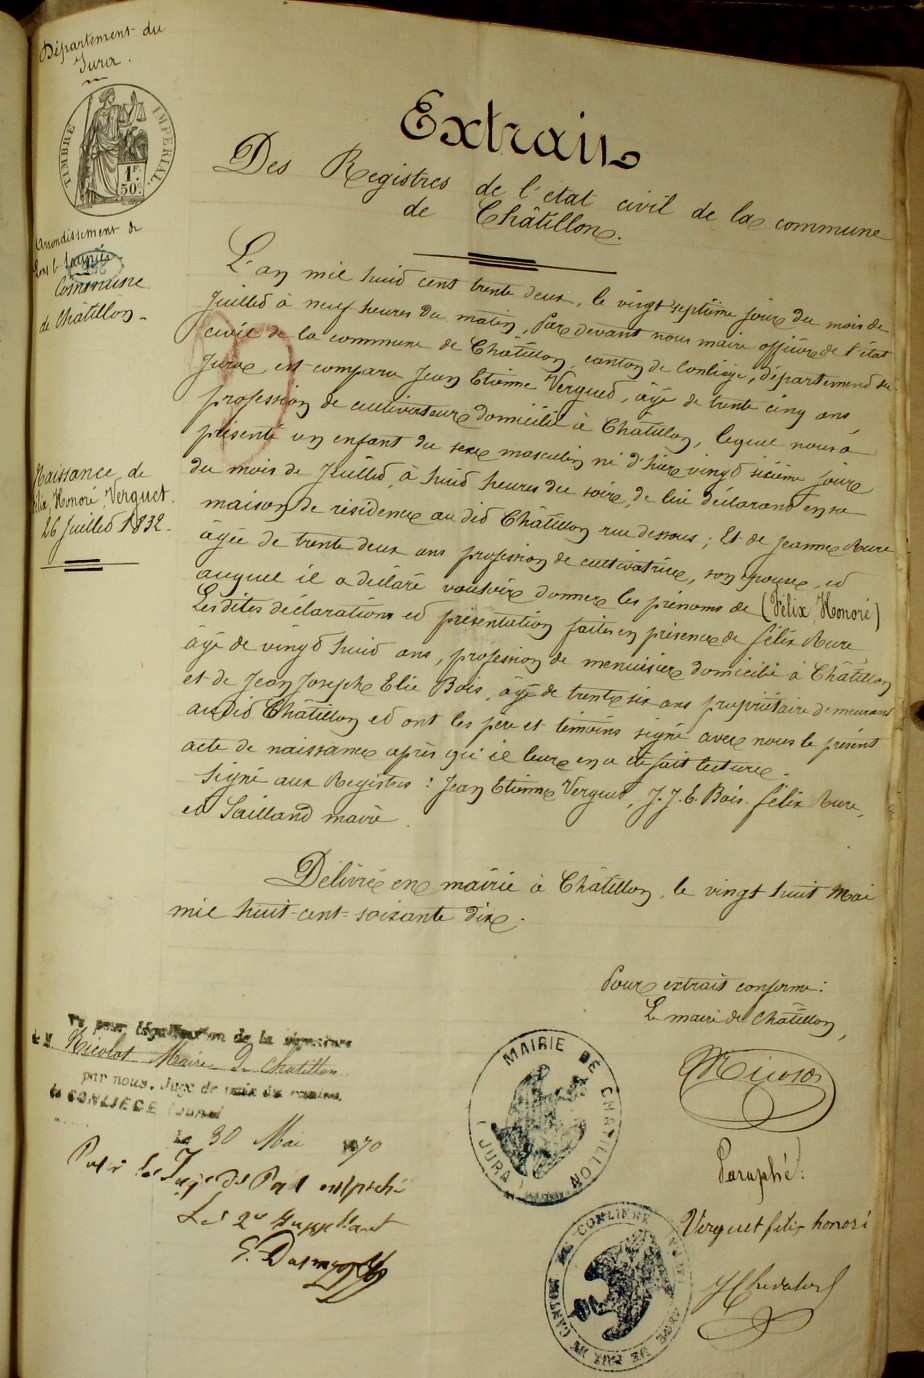 Département du
Jura.
TIMBRE IMPERIAL
1F.
50c.
Arrondissement de
Commune
de Châtillon
Naissance de
Félix, Honoré, Verguet.
26 Juillet 1832
Extrait
Des Registres de l'état civil de la commune
de Châtillon.
L'an mil huit cent trente deux, le vingt septième jour du mois de
Juillet à neuf heures du matin, Par devant nous maire officier de l'état
civil de la commune de Châtillon, canton de Conliège, département du
Jura, est comparu Jean Etienne Verguet, âgé de trente cinq ans,
profession de cultivateur domicilié à Châtillon, lequel nous a
présenté un enfant du sexe masculin né d'hier vingt sixième jour
du mois de Juillet, à huit heures du soir, de lui déclarant en sa
maison de résidence au dit Châtillon rue dessous; Et de Jeanne Aure
âgée de trente deux ans profession de cultivatrice, son épouse, et
auquel il a déclaré vouloir donner les prénoms de (Félix, Honoré)
Les dites déclarations et présentation faites en présence de félix Aure
âgé de vingt huit ans, profession de menuisier domicilié à Châtillon
et de Jean Joseph Elie Bois, âgé de trente six ans propriétaire demeurant
au dit Châtillon et ont les père et témoins signé avec nous le présent
acte de naissance après qu'il leur en a été fait lecture.
Signé aux Registres: Jean Etienne Verguet, J. J. E. Bois. félix Aure,
et Sailland maire.
Délivré en mairie à Châtillon, le vingt huit Mai
mil huit-cent-soixante dix.
Pour extrait conforme:
Le maire de Châtillon,
Nicolot
Vu pour légalisation de la signature
de M. Nicolot Maire de Chatillon
par nous, Juge de paix du canton
de CONLIEGE (Jura)
Le 30 Mai 1870
Pour le Juge de Paix empêché
Le 2e Suppléant
MAIRIE DE CHATILLON
(JURA)
Paraphé:
Verguet felix honoré
CANTON DE CONLIEGE